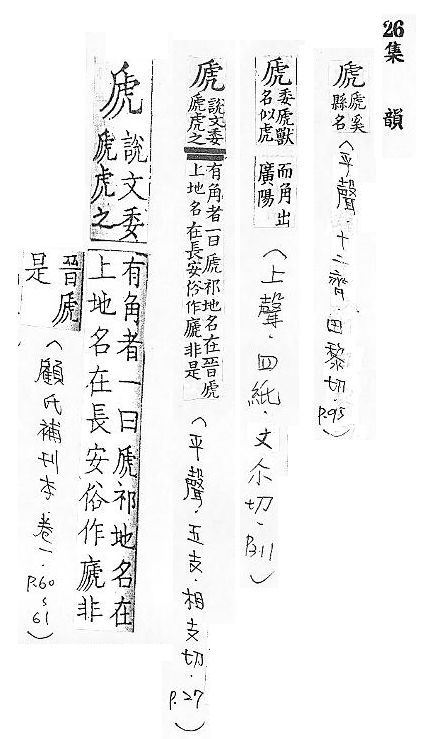 26集 韻
虒 虒奚
縣名
（平聲．十二齊．田黎切．P.95）
虒 委虒獸
名似虎
而角出
廣陽
（上聲．四紙．丈尒切．P.311）
虒 說文委
虒虎之
有角者一曰虒祁地名在晉虒
上地名在長安俗作非是
（平聲．五支．相支切．P.27）
虒 說文委
虒虎之
有角者一曰虒祁地名在
上地名在長安俗作非
晉虒
是
（顧氏補刊本．卷一．P.60 s 61）